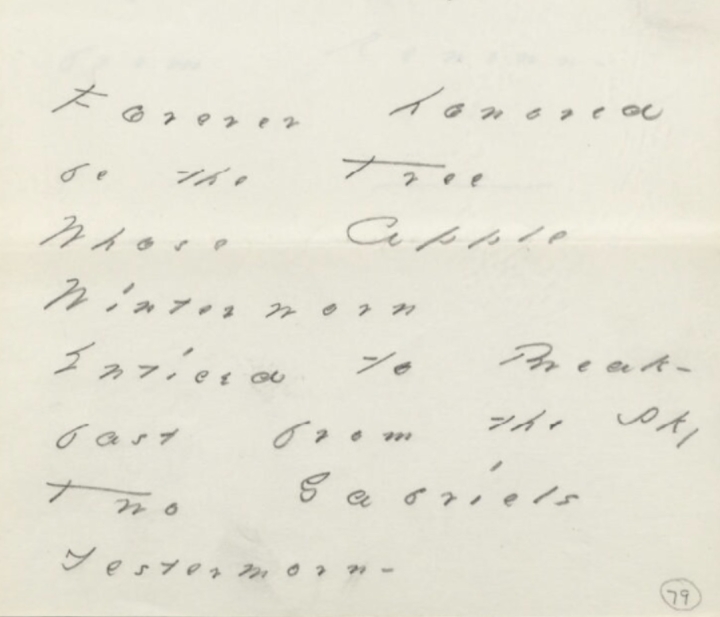 Forever honored
be the Tree
Whose Apple
Winterworn
Enticed to Break-
fast from the Sky
Two Gabriels
Yestermorn-
79